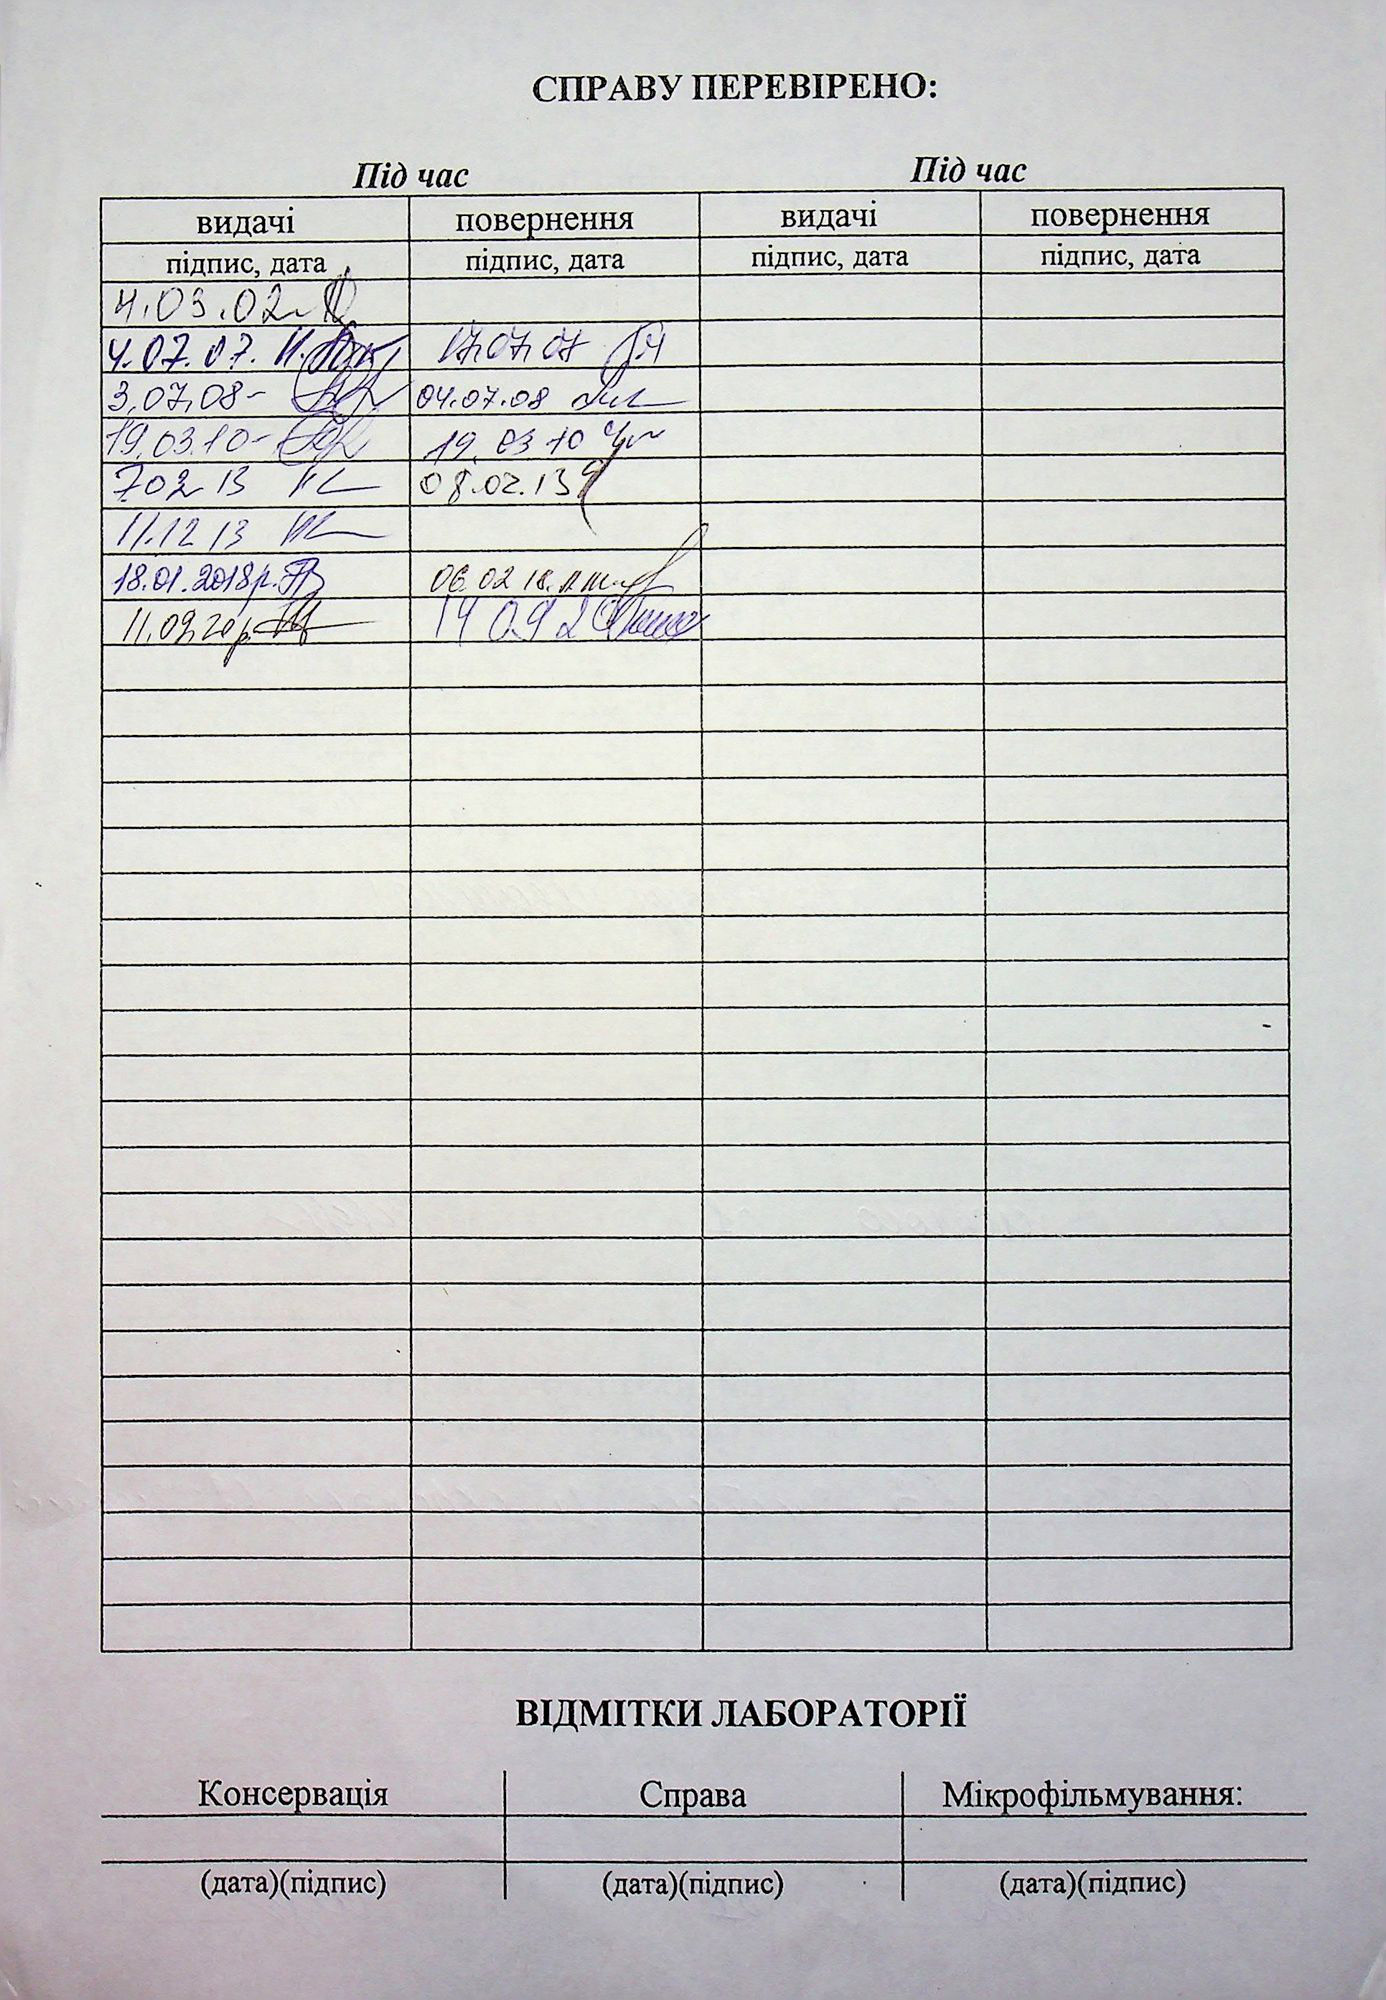 СПРАВУ ПЕРЕВІРЕНО:
Під час Під час
видачі повернення видачі повернення
підпис, дата підпис, дата підпис, дата підпис, дата
4.03.02
4.07.07. 17.07.07
3.07.08- 04.07.08
19.03.10- 19.03 10
7.02 13 08.02.13
11.12 13
18.01.2018р. 06.02 18.
11.09 20р. 14 09 2
ВІДМІТКИ ЛАБОРАТОРІЇ
Консервація Справа Мікрофільмування:
(дата)(підпис) (дата)(підпис) (дата)(підпис)